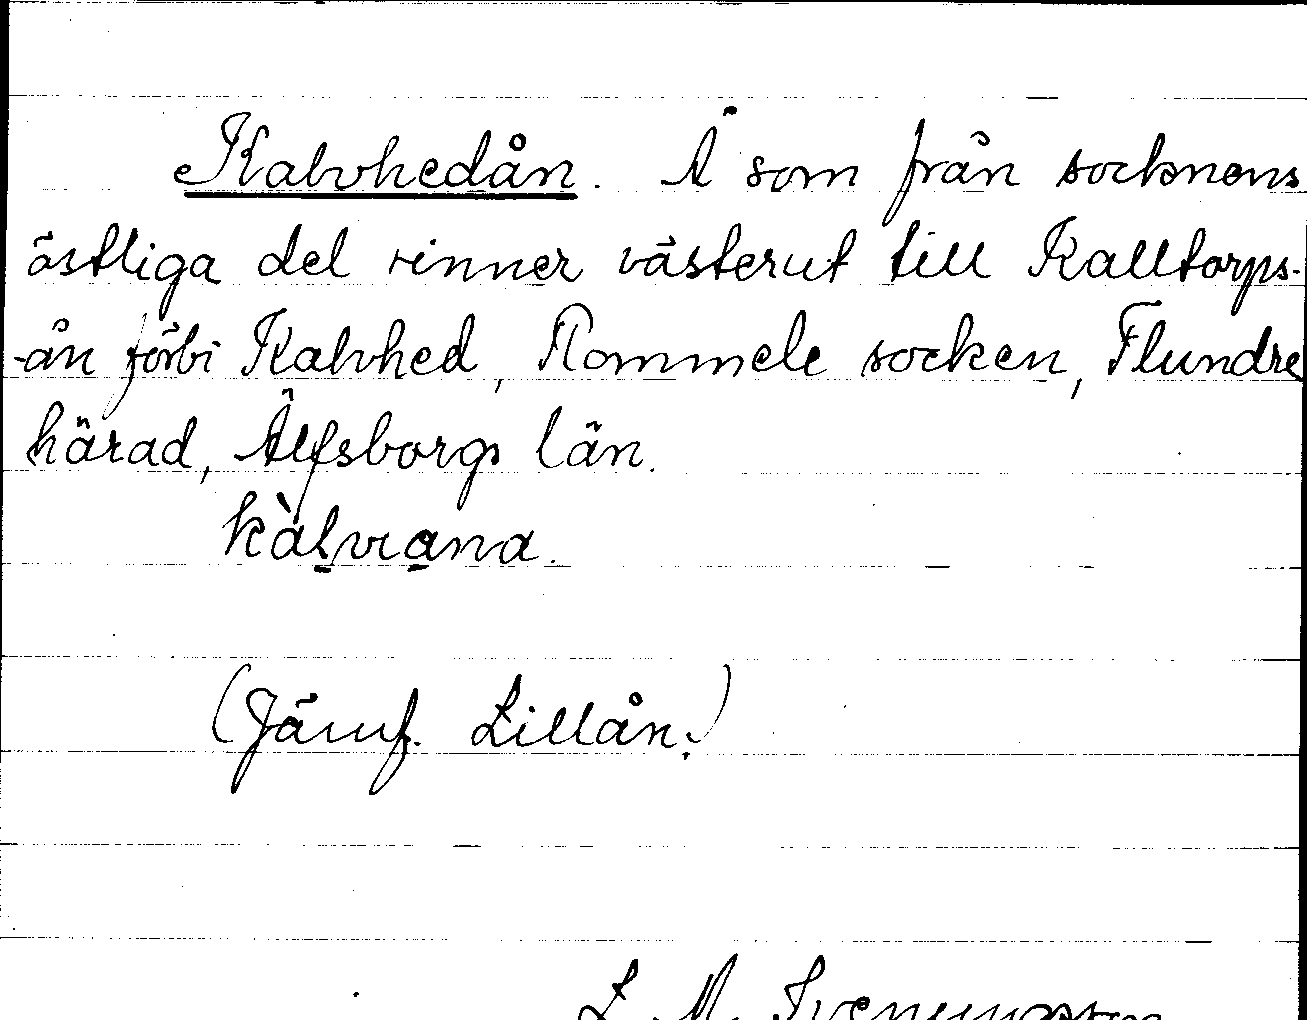 Kalvhedån. Å som från socknens
östliga del rinner västerut till Kalltorps-
-ån förbi Kalvhed, Rommele socken, Flundre
härad, Älfsborgs län.
kàlvrana.
(Jämf. Lillån.)
L. M. Svenungsson